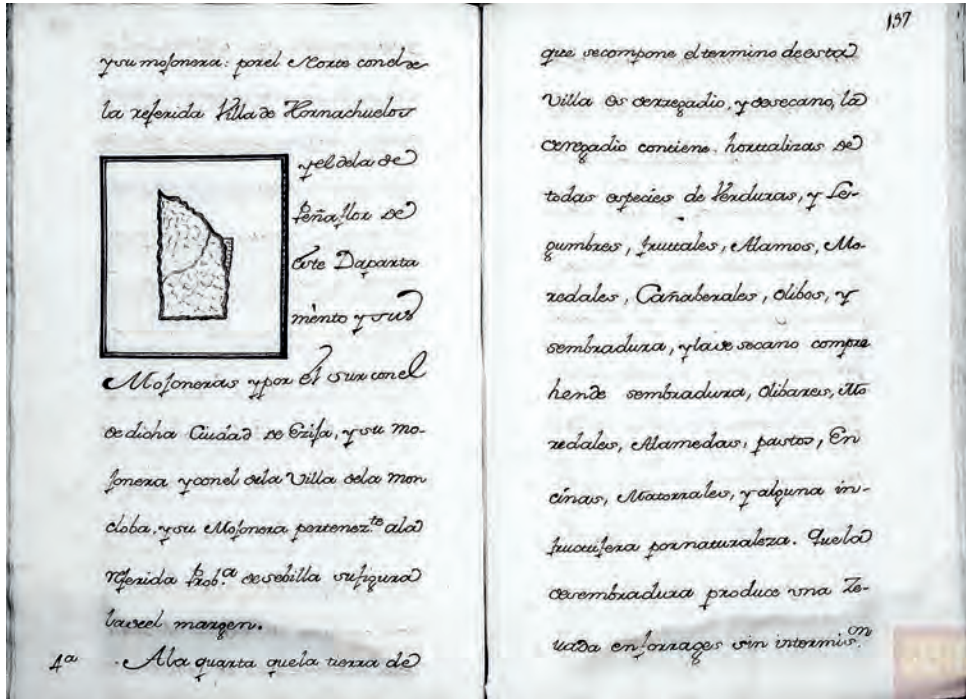 y su mojonera: por el Norte con el de
la referida Villa de Hornachuelos
y el de la de
Peñaflor de
este Daparta
mento y sus
Mojoneras y por el sur con el
de dicha Ciudad de Ezija, y su mo-
jonera y con el de la Villa de la mon
cloba, y su Mojonera pertenez.te a la
referida Prob.a de sebilla su figura
la del margen.
4a . A la quarta que la tierra de
137
que se compone el termino de esta
Villa es de rregadio, y de secano, la
de rregadio contiene hortalizas de
todas especies de Verduras, y Le-
gumbres, frutales, Alamos, Mo-
redales, Cañaberales, Olibos, y
sembradura, y la de secano compre
hende sembradura, Olibares, Mo
redales, Alamedas, pastos, En
cinas, Matorrales, y alguna in-
fructifera por naturaleza. Que la
de sembradura produce una Ze-
uada en forrages sin intermis.on